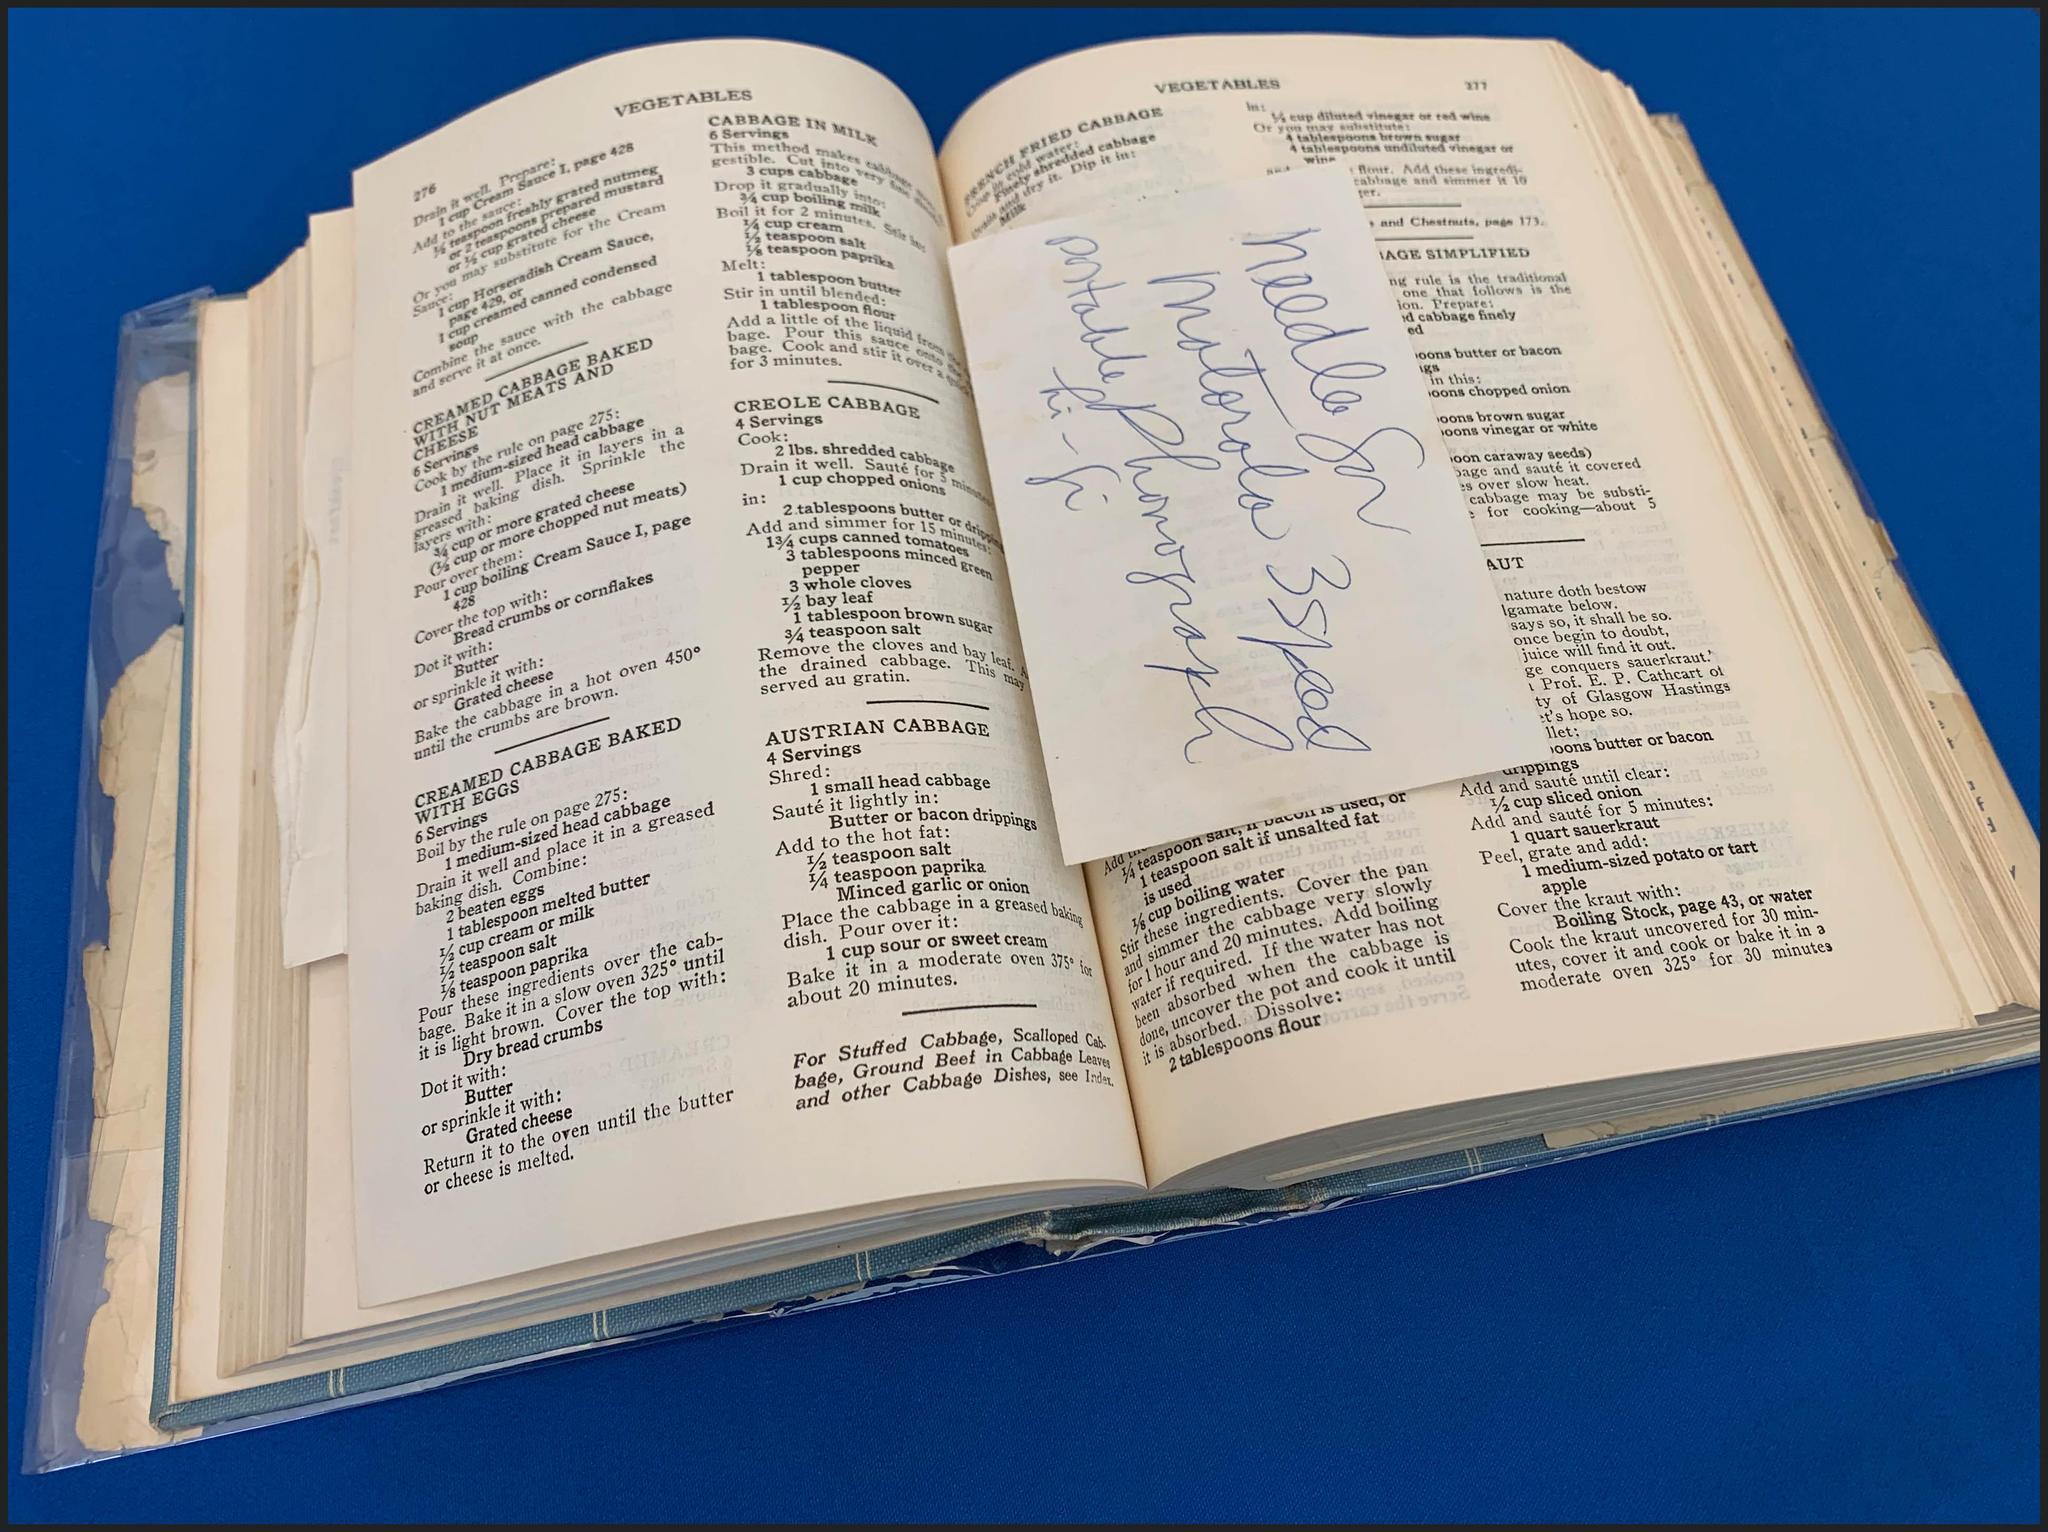 276
VEGETABLES
Drain it well. Prepare:
1 cup Cream Sauce I, page 428
Add to the sauce:
⅛ teaspoon freshly grated nutmeg
or 2 teaspoons prepared mustard
or ½ cup grated cheese
Or you may substitute for the Cream
Sauce:
1 cup Horseradish Cream Sauce,
page 429, or
1 cup creamed canned condensed
soup
Combine the sauce with the cabbage
and serve it at once.
CREAMED CABBAGE BAKED
WITH NUT MEATS AND
CHEESE
6 Servings
Cook by the rule on page 275:
1 medium-sized head cabbage
Drain it well. Place it in layers in a
greased baking dish. Sprinkle the
layers with:
¾ cup or more grated cheese
(½ cup or more chopped nut meats)
Pour over them:
1 cup boiling Cream Sauce I, page
428
Cover the top with:
Bread crumbs or cornflakes
Dot it with:
Butter
or sprinkle it with:
Grated cheese
Bake the cabbage in a hot oven 450°
until the crumbs are brown.
CREAMED CABBAGE BAKED
WITH EGGS
6 Servings
Boil by the rule on page 275:
1 medium-sized head cabbage
Drain it well and place it in a greased
baking dish. Combine:
2 beaten eggs
1 tablespoon melted butter
½ cup cream or milk
½ teaspoon salt
⅛ teaspoon paprika
Pour these ingredients over the cab-
bage. Bake it in a slow oven 325° until
it is light brown. Cover the top with:
Dry bread crumbs
Dot it with:
Butter
or sprinkle it with:
Grated cheese
Return it to the oven until the butter
or cheese is melted.
CABBAGE IN MILK
6 Servings
This method makes cabbage
gestible. Cut into very fine
3 cups cabbage
Drop it gradually into:
¾ cup boiling milk
Boil it for 2 minutes. Stir in:
¼ cup cream
½ teaspoon salt
⅛ teaspoon paprika
Melt:
1 tablespoon butter
Stir in until blended:
1 tablespoon flour
Add a little of the liquid from the
bage. Pour this sauce onto the
bage. Cook and stir it over a
for 3 minutes.
CREOLE CABBAGE
4 Servings
Cook:
2 lbs. shredded cabbage
Drain it well. Sauté for 5 minutes
1 cup chopped onions
in:
2 tablespoons butter or dripping
Add and simmer for 15 minutes:
1¾ cups canned tomatoes
3 tablespoons minced green
pepper
3 whole cloves
½ bay leaf
1 tablespoon brown sugar
¾ teaspoon salt
Remove the cloves and bay leaf. A
the drained cabbage. This may
served au gratin.
AUSTRIAN CABBAGE
4 Servings
Shred:
1 small head cabbage
Sauté it lightly in:
Butter or bacon drippings
Add to the hot fat:
½ teaspoon salt
¼ teaspoon paprika
Minced garlic or onion
Place the cabbage in a greased baking
dish. Pour over it:
1 cup sour or sweet cream
Bake it in a moderate oven 375° for
about 20 minutes.
For Stuffed Cabbage, Scalloped Cab-
bage, Ground Beef in Cabbage Leaves
and other Cabbage Dishes, see Index.
VEGETABLES
277
FRENCH FRIED CABBAGE
Crisp in cold water:
Finely shredded cabbage
Drain and dry it. Dip it in:
Milk
needle for
Motorola 3 speed
portable phonograph
hi-fi
¼ teaspoon salt, if bacon is used, or
1 teaspoon salt if unsalted fat
is used
⅛ cup boiling water
Stir these ingredients. Cover the pan
and simmer the cabbage very slowly
for 1 hour and 20 minutes. Add boiling
water if required. If the water has not
been absorbed when the cabbage is
done, uncover the pot and cook it until
it is absorbed. Dissolve:
2 tablespoons flour
in:
¼ cup diluted vinegar or red wine
Or you may substitute:
4 tablespoons brown sugar
4 tablespoons undiluted vinegar or
wine
flour. Add these ingredi-
cabbage and simmer it 10
and Chestnuts, page 173.
SIMPLIFIED
rule is the traditional
one that follows is the
Prepare:
cabbage finely
butter or bacon
in this:
chopped onion
brown sugar
vinegar or white
caraway seeds)
and sauté it covered
over slow heat.
cabbage may be substi-
for cooking—about 5
nature doth bestow
below.
says so, it shall be so.
once begin to doubt,
juice will find it out.
conquers sauerkraut.'
Prof. E. P. Cathcart of
of Glasgow Hastings
hope so.
butter or bacon
drippings
Add and sauté until clear:
½ cup sliced onion
Add and sauté for 5 minutes:
1 quart sauerkraut
Peel, grate and add:
1 medium-sized potato or tart
apple
Cover the kraut with:
Boiling Stock, page 43, or water
Cook the kraut uncovered for 30 min-
utes, cover it and cook or bake it in a
moderate oven 325° for 30 minutes